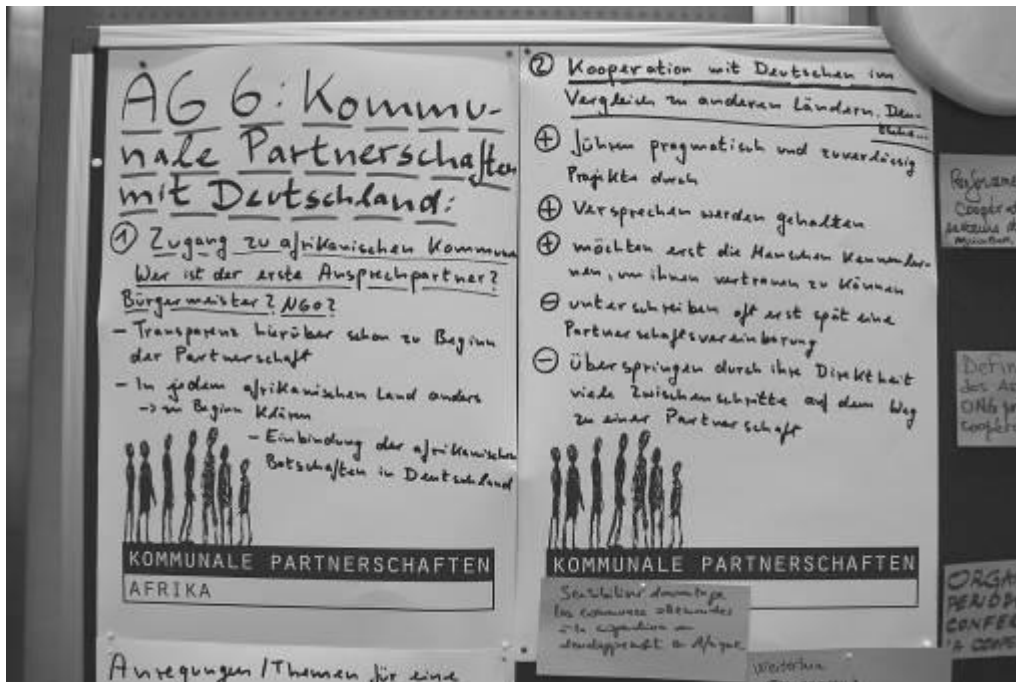 AG 6: Kommu-
nale Partnerschaften
mit Deutschland:
① Zugang zu afrikanischen Kommunen
Wer ist der erste Ansprechpartner?
Bürgermeister? NGO?
- Transparenz hierüber schon zu Beginn
der Partnerschaft
- In jedem afrikanischen Land anders
-> zu Beginn klären
- Einbindung der afrikanischen
Botschaften in Deutschland
KOMMUNALE PARTNERSCHAFTEN
AFRIKA
Anregungen/Themen für eine
② Kooperation mit Deutschen im
Vergleich zu anderen Ländern. Deu-
tsche...
⊕ führen pragmatisch und zuverlässig
Projekte durch
⊕ Versprechen werden gehalten
⊕ möchten erst die Menschen kennenler-
nen, um ihnen vertrauen zu können
⊖ unterschreiben oft erst spät eine
Partnerschaftsvereinbarung
⊖ überspringen durch ihre Direktheit
viele Zwischenschritte auf dem Weg
zu einer Partnerschaft
KOMMUNALE PARTNERSCHAFTEN
Sensibiliser davantage
les communes allemandes
à la coopération au
développement en Afrique
Weiterhin
Coopérat
Defin
des Ac
ONG
coopér
ORGA
PERIOD
CONFER